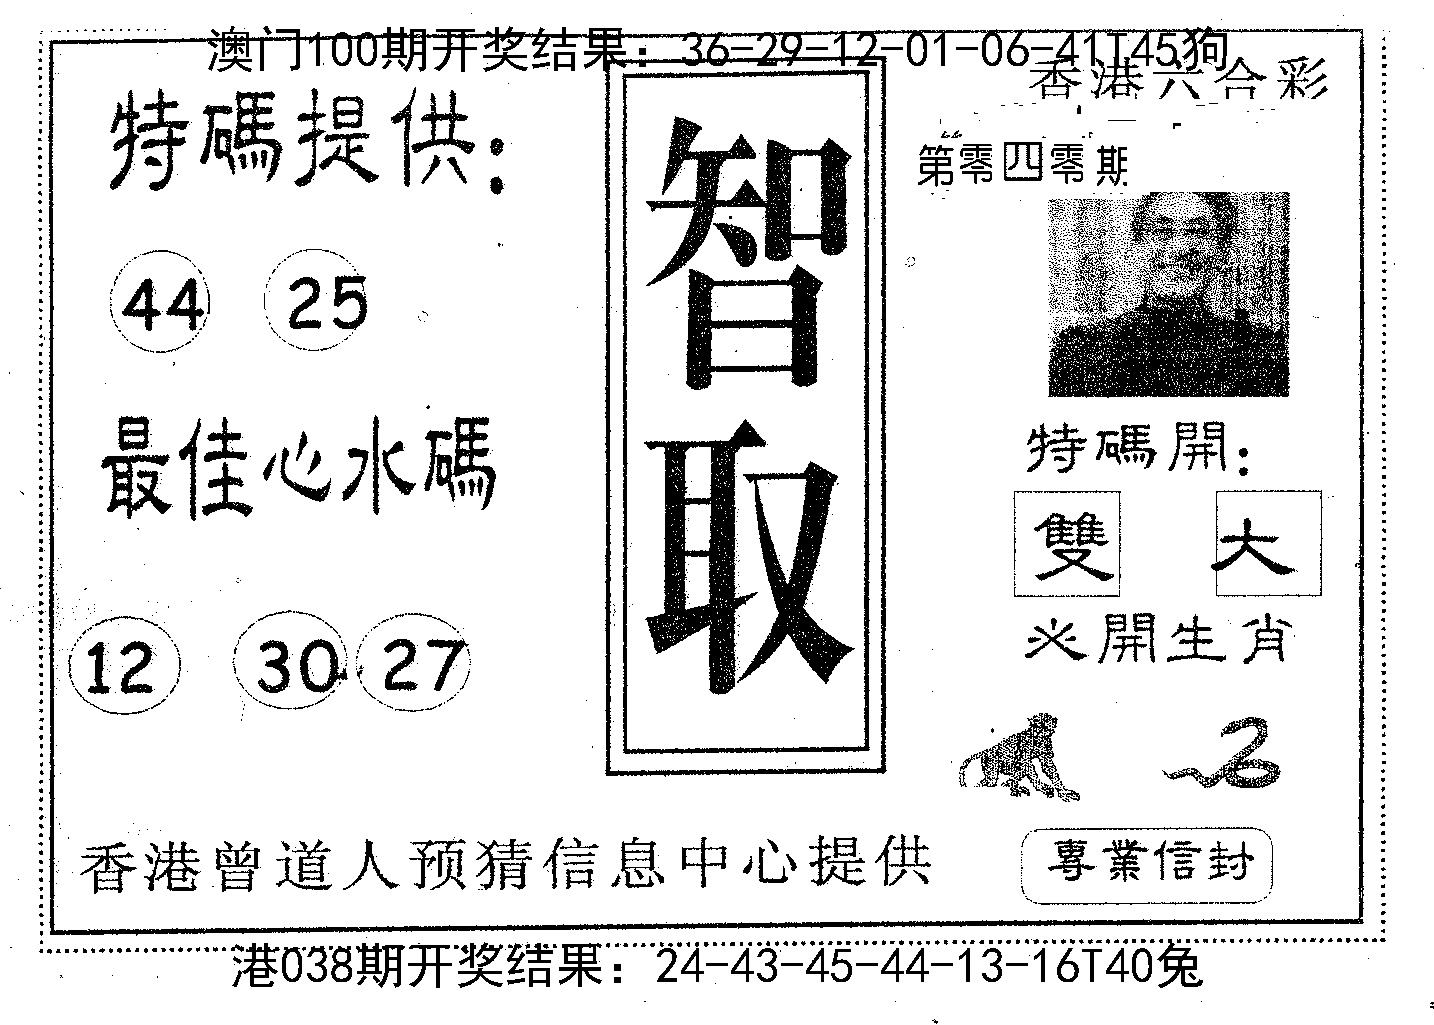 澳门100期开奖结果：36-29-12-01-06-41T45狗
香港六合彩
特碼提供：
第零四零期
44 25
智取
最佳心水碼
特碼開：
雙 大
12 30 27
必開生肖
香港曾道人预猜信息中心提供
專業信封
港038期开奖结果：24-43-45-44-13-16T40兔